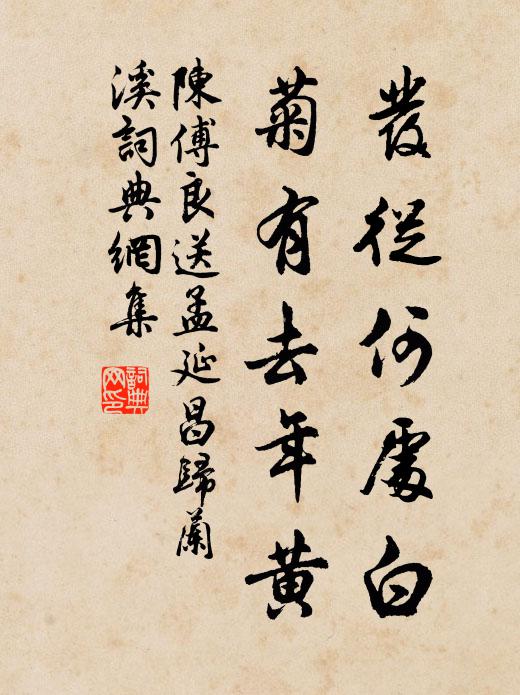 發從何處白
菊有去年黃
陳傅良送孟延昌歸蘭
溪詞典網集
詞典
网印